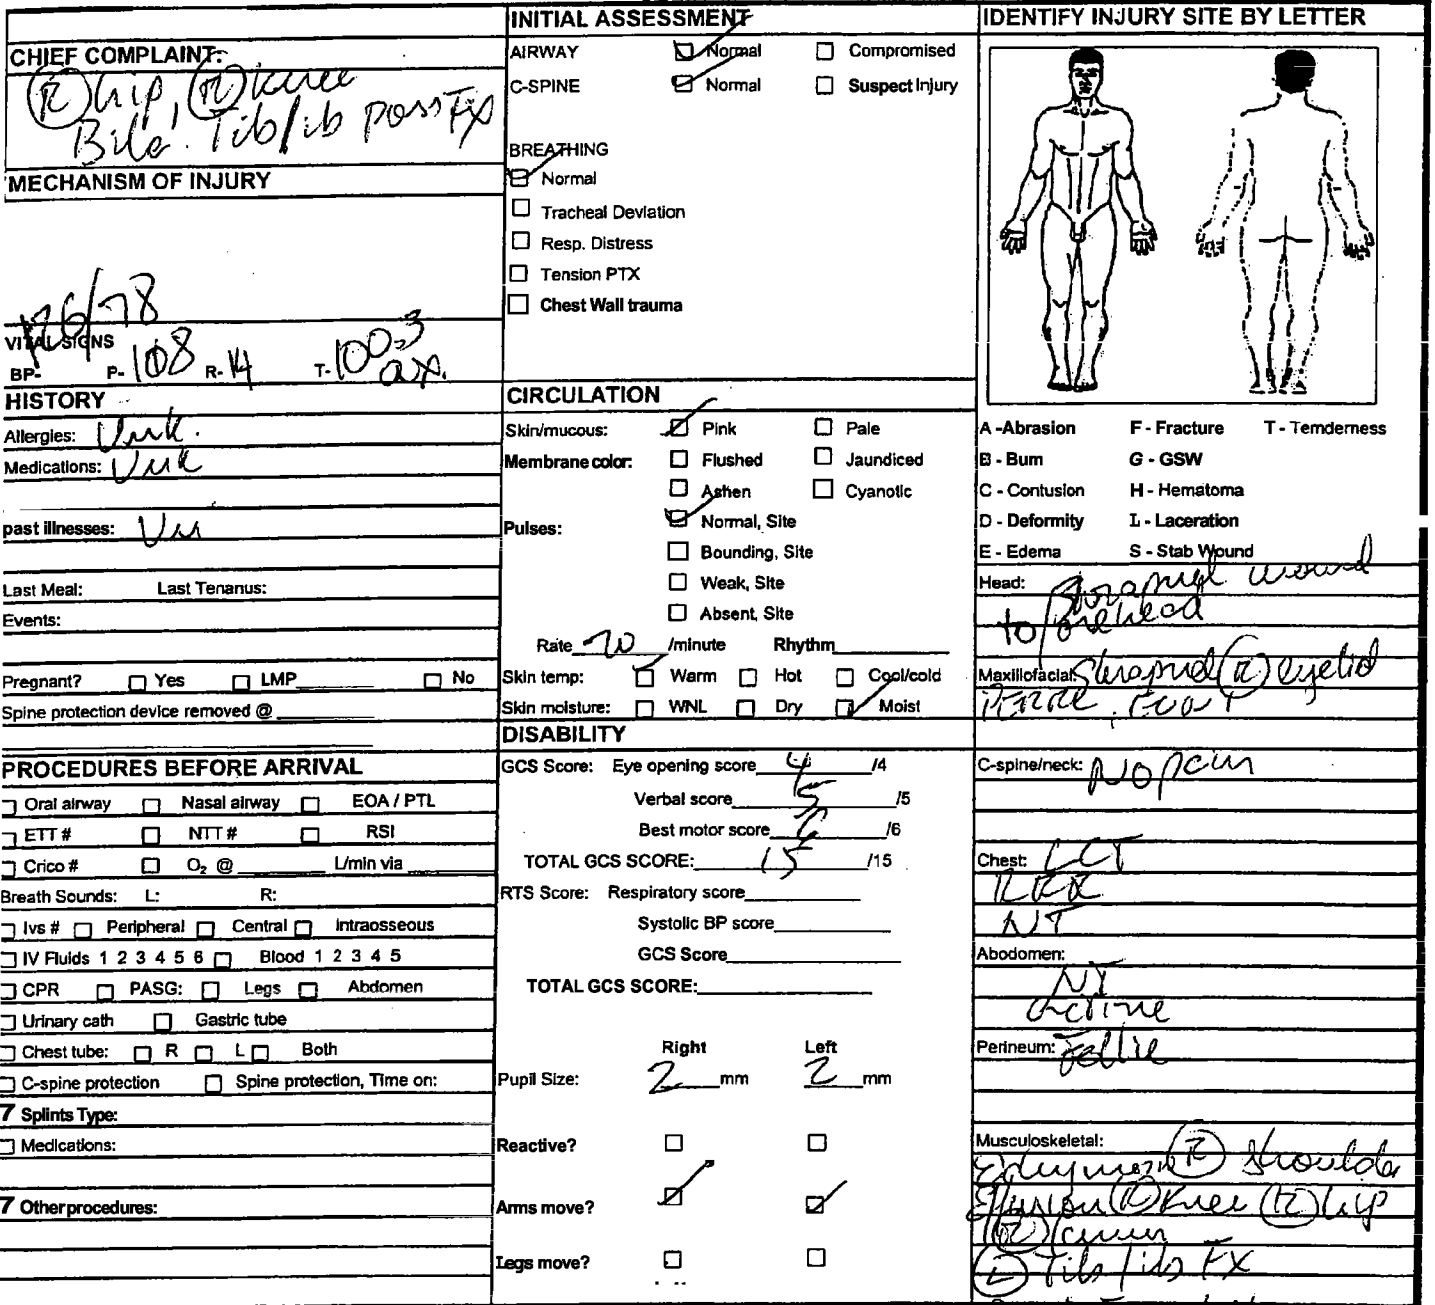 CHIEF COMPLAINT:
(R) hip, (R) knee
Bila. Tib/ib poss FX
MECHANISM OF INJURY
126/78
VITAL SIGNS
BP- P- 108 R- 14 T- 100.3
ax.
HISTORY
Allergies: Unk.
Medications: Unk
past illnesses:
Last Meal: Last Tenanus:
Events:
Pregnant? Yes LMP No
Spine protection device removed @
PROCEDURES BEFORE ARRIVAL
Oral airway Nasal airway EOA / PTL
ETT # NTT # RSI
Crico # O₂ @ L/min via
Breath Sounds: L: R:
Ivs # Peripheral Central Intraosseous
IV Fluids 1 2 3 4 5 6 Blood 1 2 3 4 5
CPR PASG: Legs Abdomen
Urinary cath Gastric tube
Chest tube: R L Both
C-spine protection Spine protection, Time on:
7 Splints Type:
Medications:
7 Other procedures:
INITIAL ASSESSMENT
AIRWAY Normal Compromised
C-SPINE Normal Suspect Injury
BREATHING
Normal
Tracheal Deviation
Resp. Distress
Tension PTX
Chest Wall trauma
CIRCULATION
Skin/mucous: Pink Pale
Membrane color: Flushed Jaundiced
Ashen Cyanotic
Pulses: Normal, Site
Bounding, Site
Weak, Site
Absent, Site
Rate /minute Rhythm
Skin temp: Warm Hot Cool/cold
Skin moisture: WNL Dry Moist
DISABILITY
GCS Score: Eye opening score 4 /4
Verbal score 5 /5
Best motor score 6 /6
TOTAL GCS SCORE: 15 /15
RTS Score: Respiratory score
Systolic BP score
GCS Score
TOTAL GCS SCORE:
Right Left
Pupil Size: 2 mm 2 mm
Reactive?
Arms move?
Legs move?
IDENTIFY INJURY SITE BY LETTER
A -Abrasion F - Fracture T - Temderness
B - Burn G - GSW
C - Contusion H - Hematoma
D - Deformity L - Laceration
E - Edema S - Stab Wound
Head: Shrapnel wound
to forehead
Maxillofacial: Shrapnel (R) eyelid
C-spine/neck: No pain
Chest:
RRR
NT
Abodomen:
NT
active
Perineum:
Musculoskeletal:
(R) Shoulder
Effusion (R) Knee (R) hip
(R)
Tib/ib FX